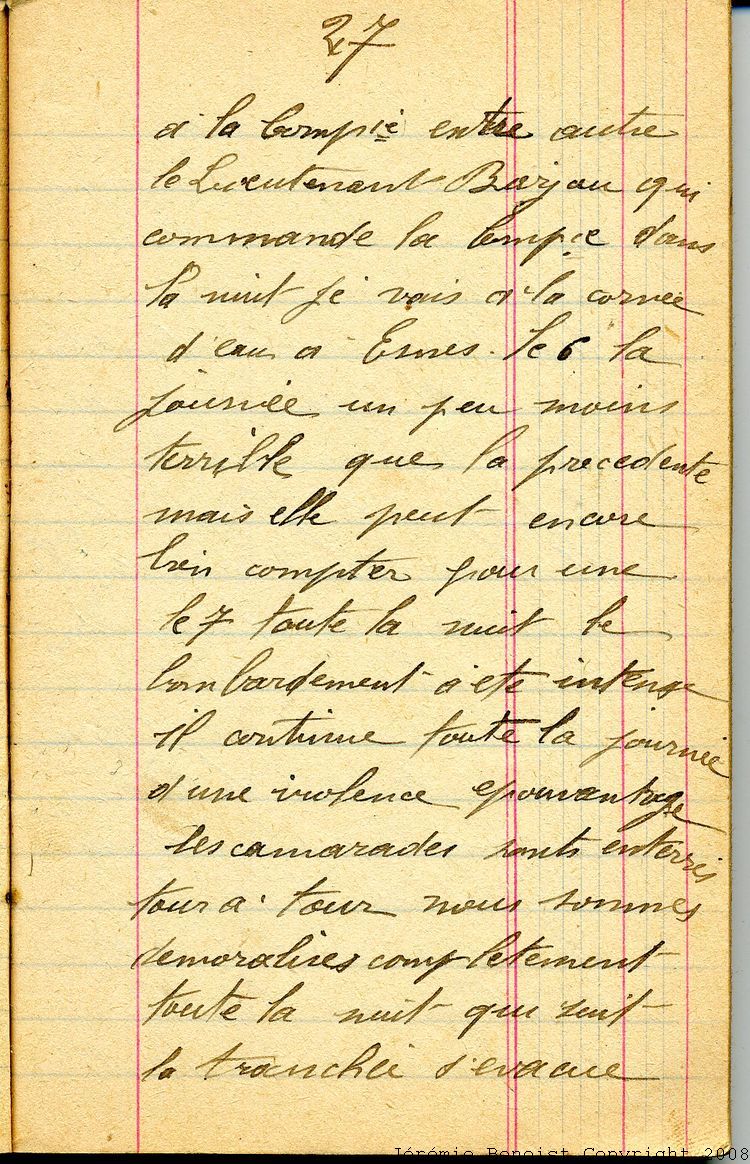 27
à la Compie entre autre
le Lieutenant Barjou qui
commande la Compie dans
la nuit je vais à la corvée
d'eau a Esnes. le 6 la
journée un peu moins
terrible que la precedente
mais elle peut encore
bien compter pour une
le 7 toute la nuit le
bombardement a ete intense
il continue toute la journée
d'une violence epouvantage
les camarades sonts enterrés
tour a tour nous sommes
demoralises completement
toute la nuit qui suit
la tranchée s'evacue
Jérémie Benoist Copyright 2008